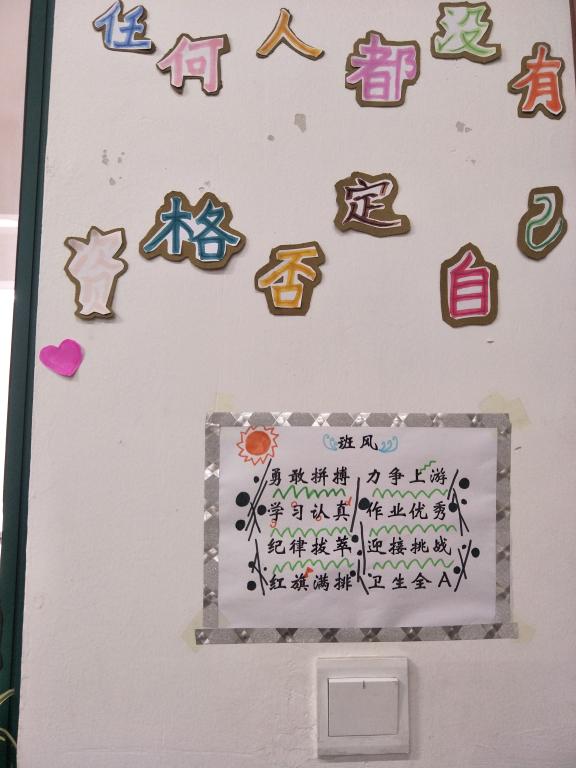 任何人都没有
资格否定自己
班风
勇敢拼搏 力争上游
学习认真 作业优秀
纪律拔萃 迎接挑战
红旗满排 卫生全A